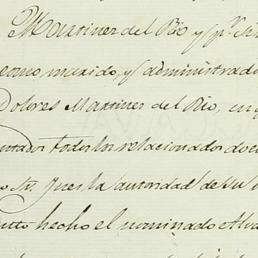 Martinez del Rio y p.r
como marido, y administrad
Dolores Martinez del Rio, en
todos los relacionados doc
Sr. Juez la autoridad de su
hecho el nominado Alva